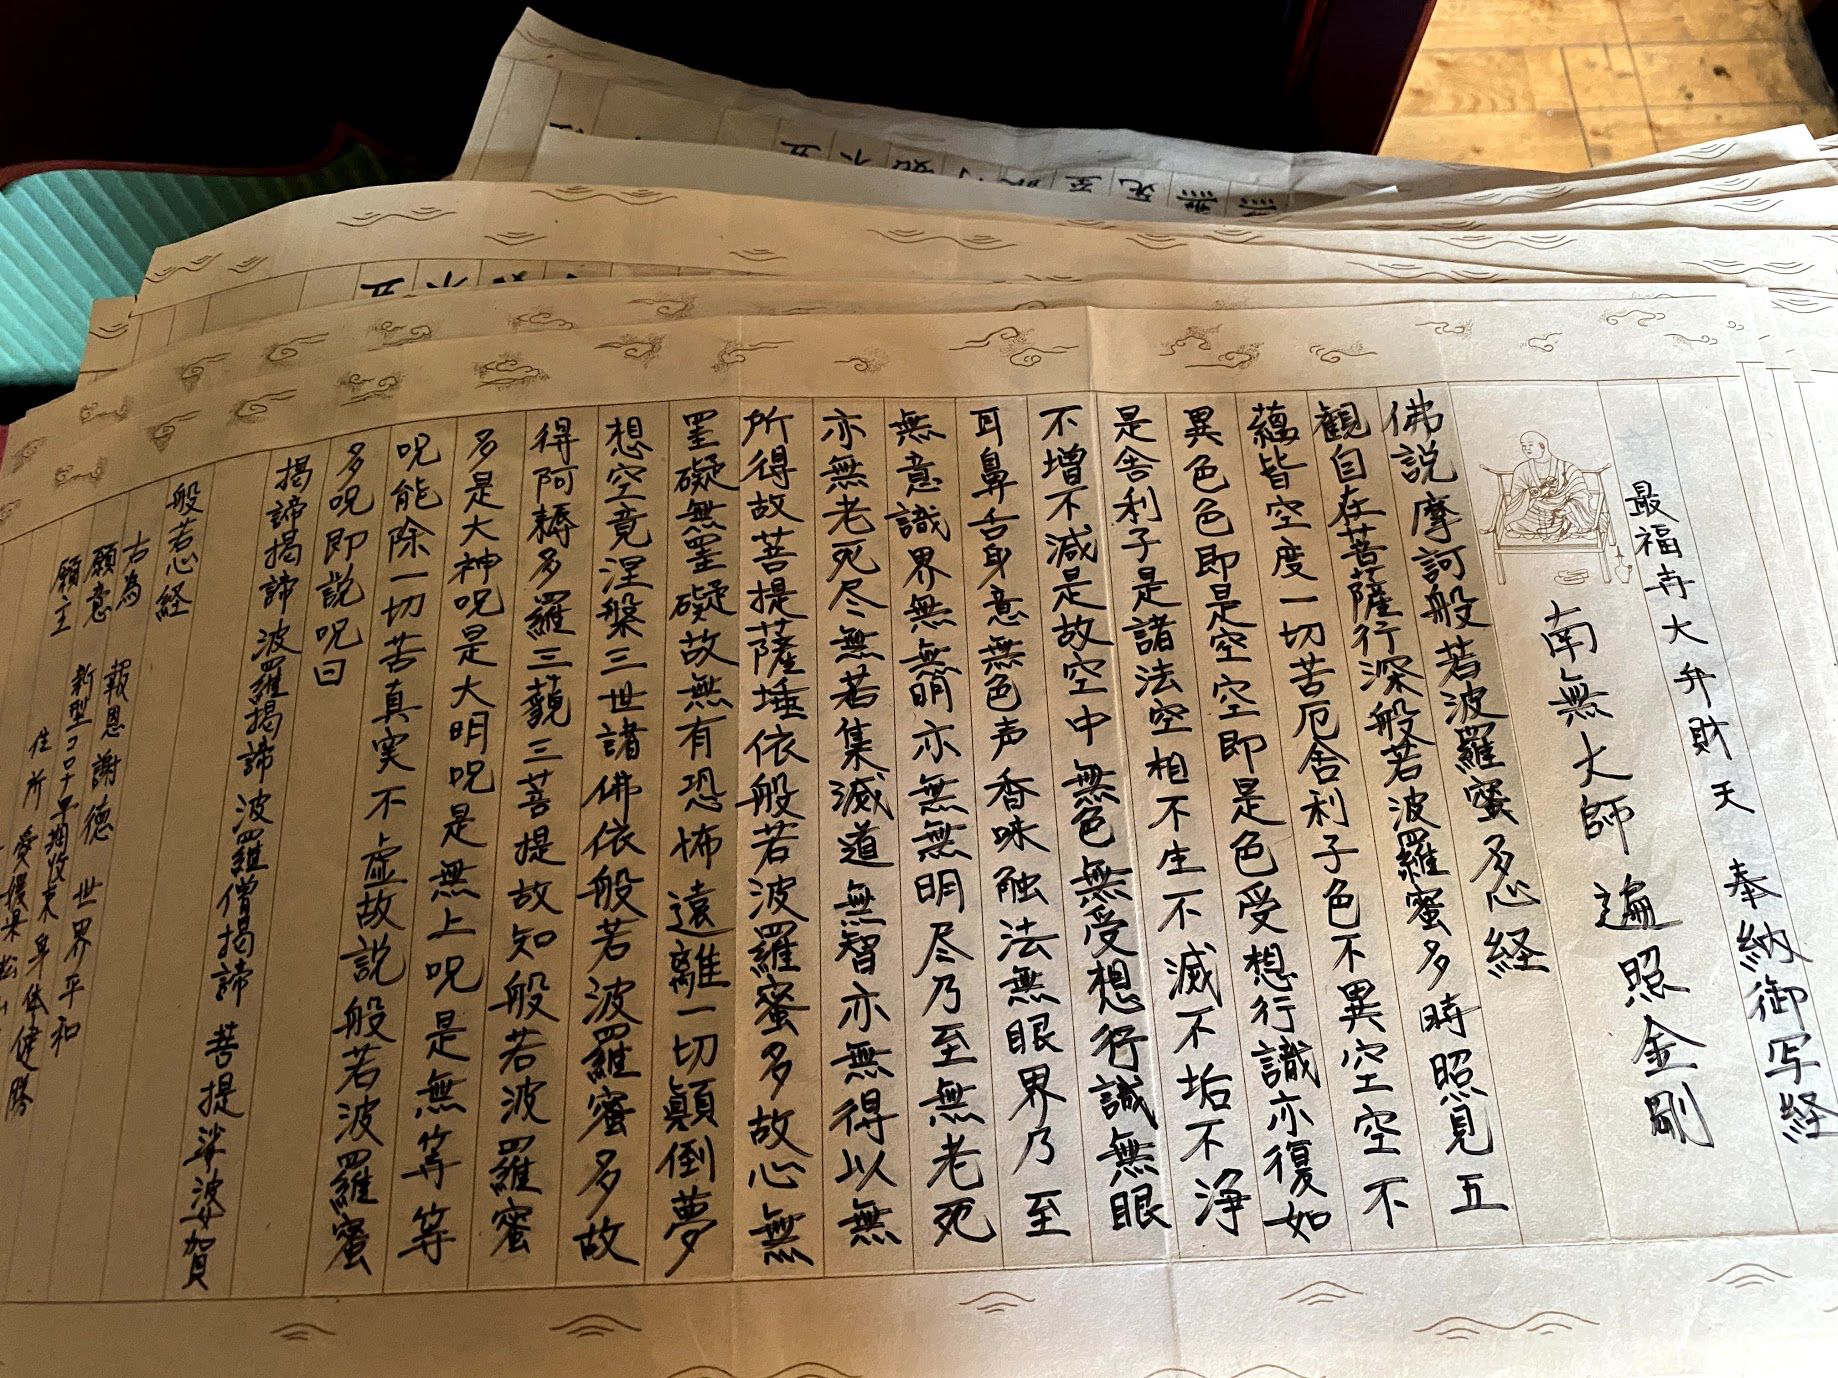 最福寺大弁財天 奉納御写経
南無大師遍照金剛
佛説摩訶般若波羅蜜多心経
観自在菩薩行深般若波羅蜜多時照見五
蘊皆空度一切苦厄舎利子色不異空空不
異色色即是空空即是色受想行識亦復如
是舎利子是諸法空相不生不滅不垢不浄
不増不減是故空中無色無受想行識無眼
耳鼻舌身意無色声香味触法無眼界乃至
無意識界無無明亦無無明尽乃至無老死
亦無老死尽無苦集滅道無智亦無得以無
所得故菩提薩埵依般若波羅蜜多故心無
罣礙無罣礙故無有恐怖遠離一切顛倒夢
想空竟涅槃三世諸佛依般若波羅蜜多故
得阿耨多羅三藐三菩提故知般若波羅蜜
多是大神呪是大明呪是無上呪是無等等
呪能除一切苦真実不虚故説般若波羅蜜
多呪即説呪曰
掲諦掲諦 波羅掲諦 波羅僧掲諦 菩提娑婆賀
般若心経
右為
願意 報恩謝徳 世界平和
新型コロナ早期收束 身体健勝
願主 住所 愛媛県松山